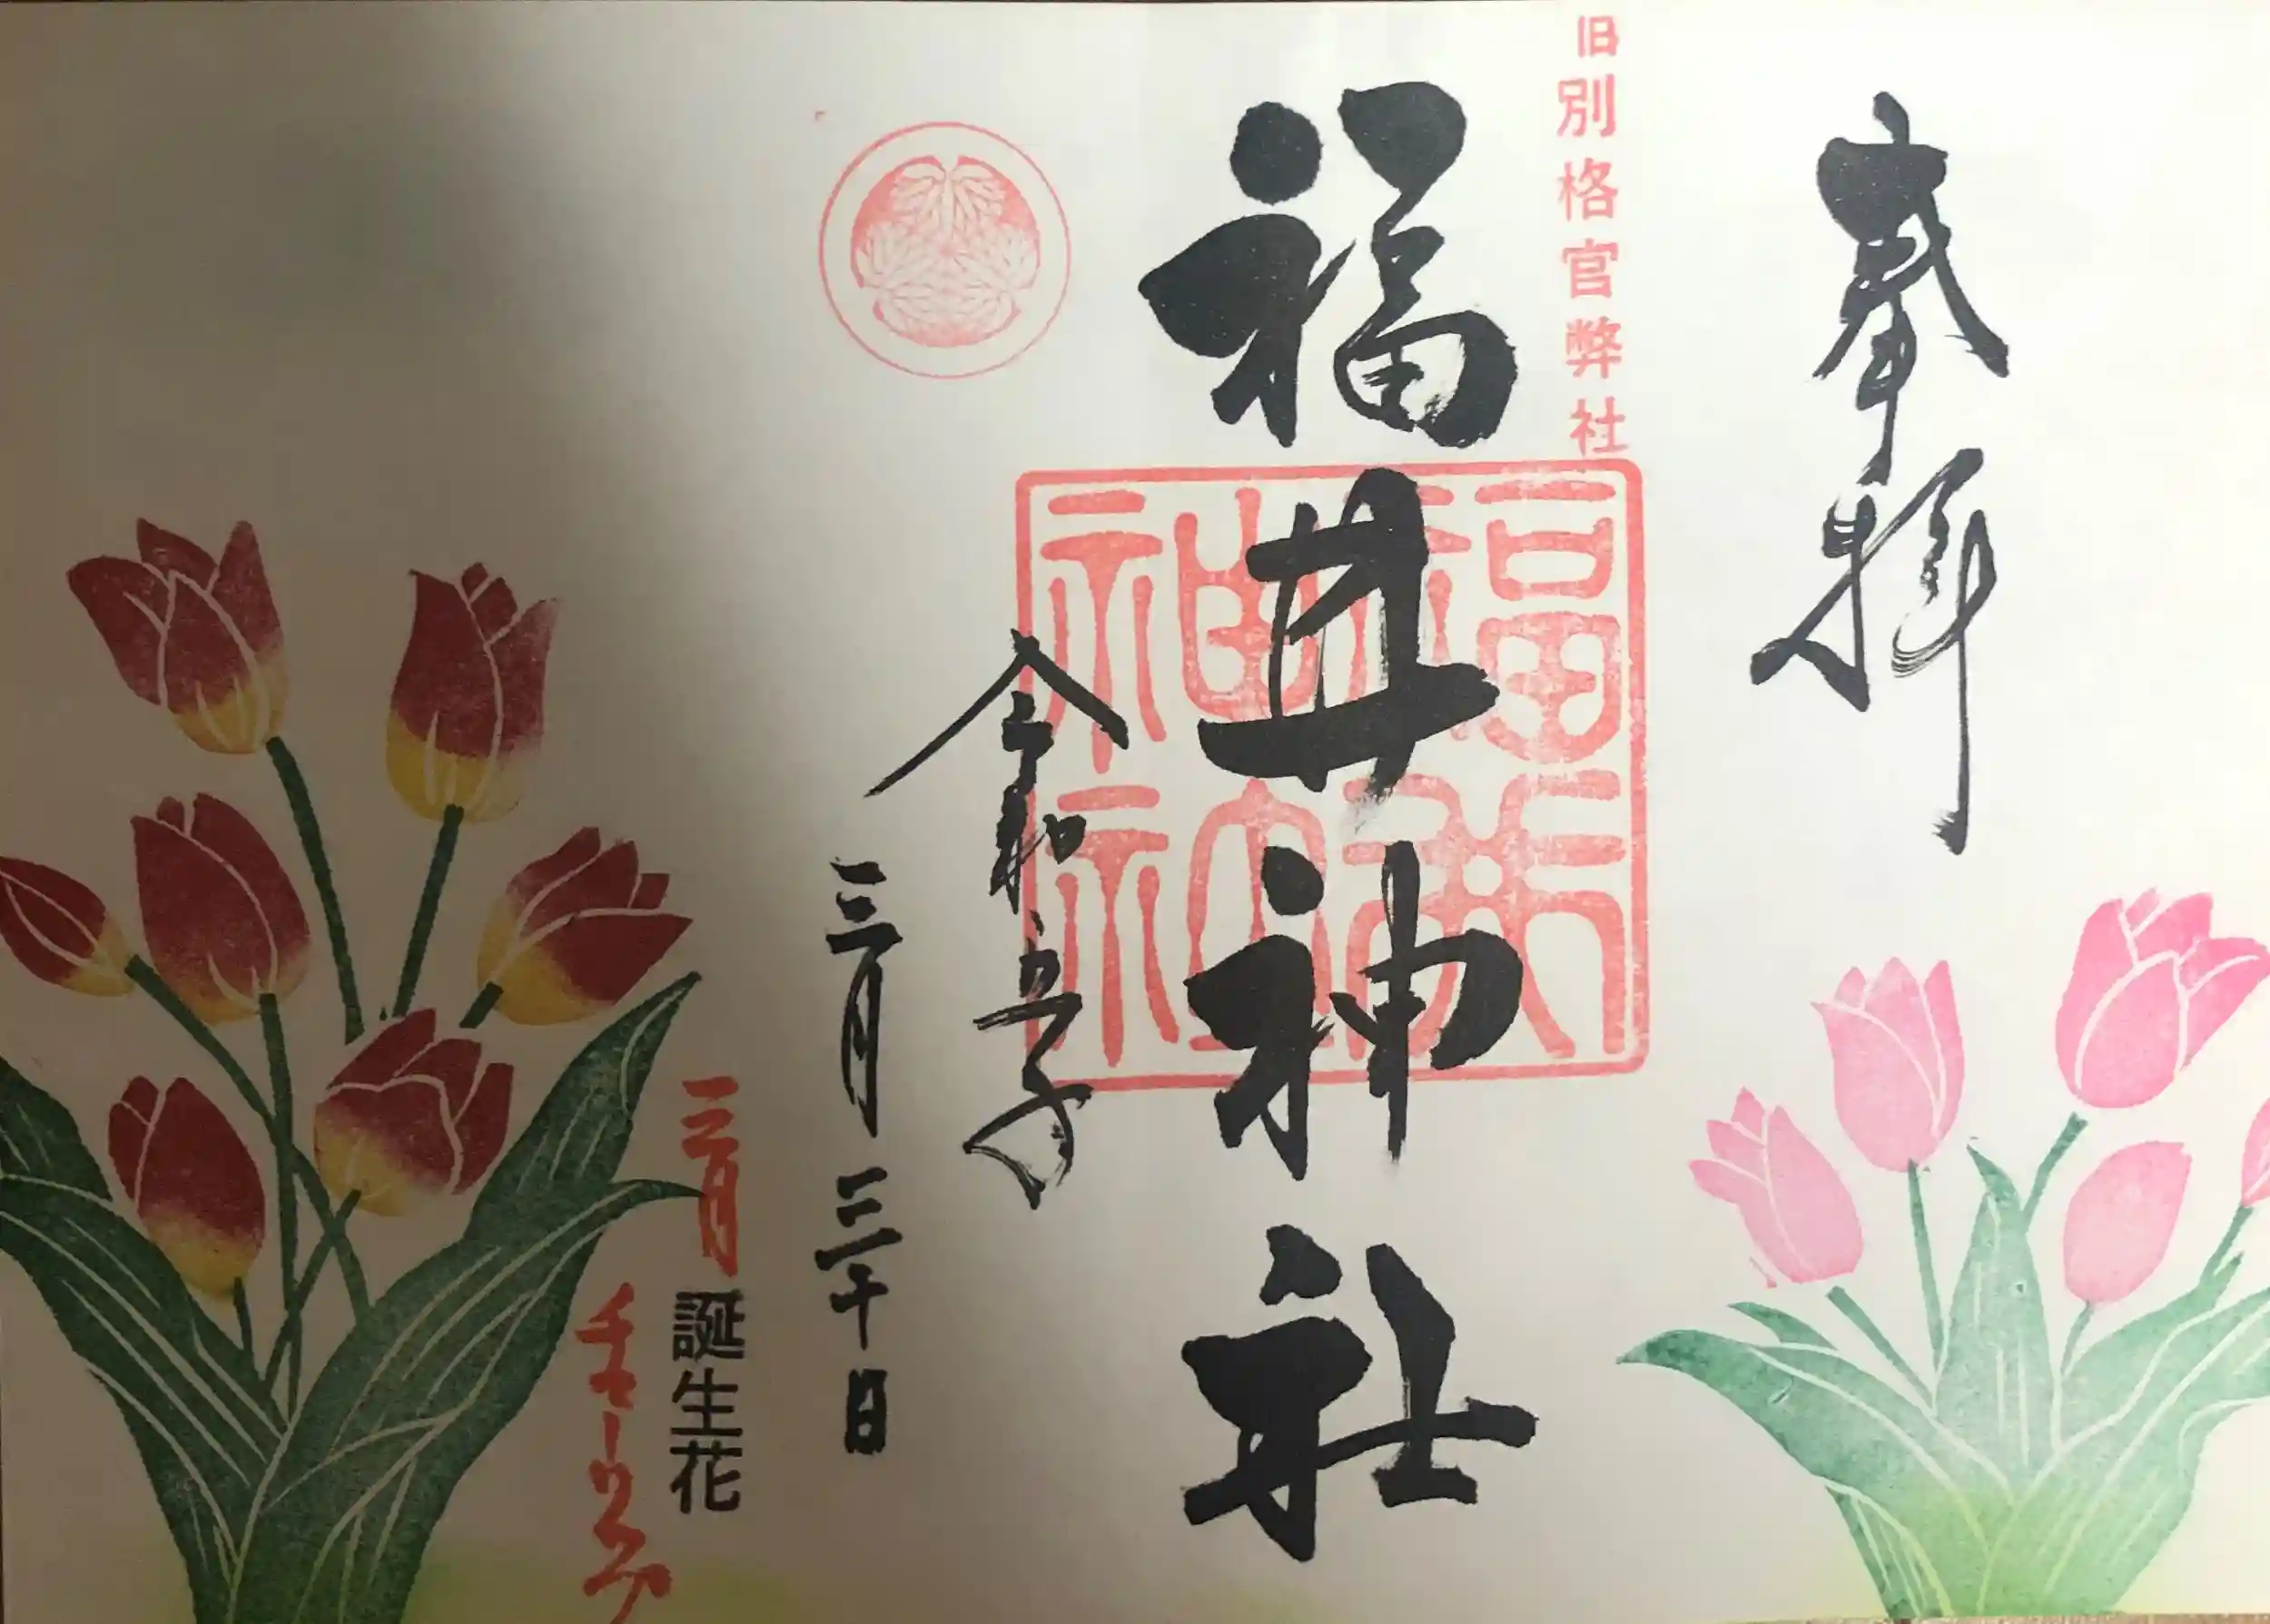 奉拝
旧別格官弊社
福井神社
福井神社
令和五年
三月三十日
三月誕生花
チューリップ